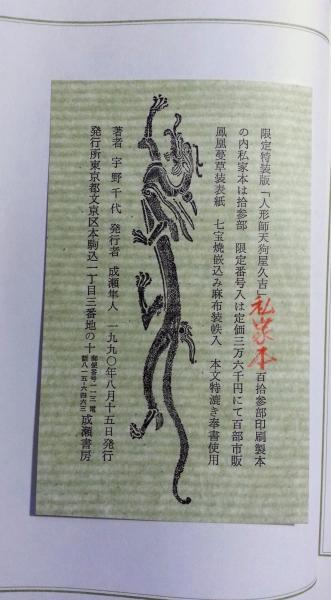 限定特装版「人形師天狗屋久吉」百拾参部印刷製本
私家本
の内私家本は拾参部 限定番号入は定価三万六千円にて百部市販
鳳凰蔓草装表紙 七宝焼嵌込み麻布装帙入 本文特漉き奉書使用
著者 宇野千代 発行者 成瀬隼人 一九九〇年八月十五日発行
発行所東京都文京区本駒込一丁目三番地の十 郵便番号一一三 電話八一五・六四六三 成瀬書房